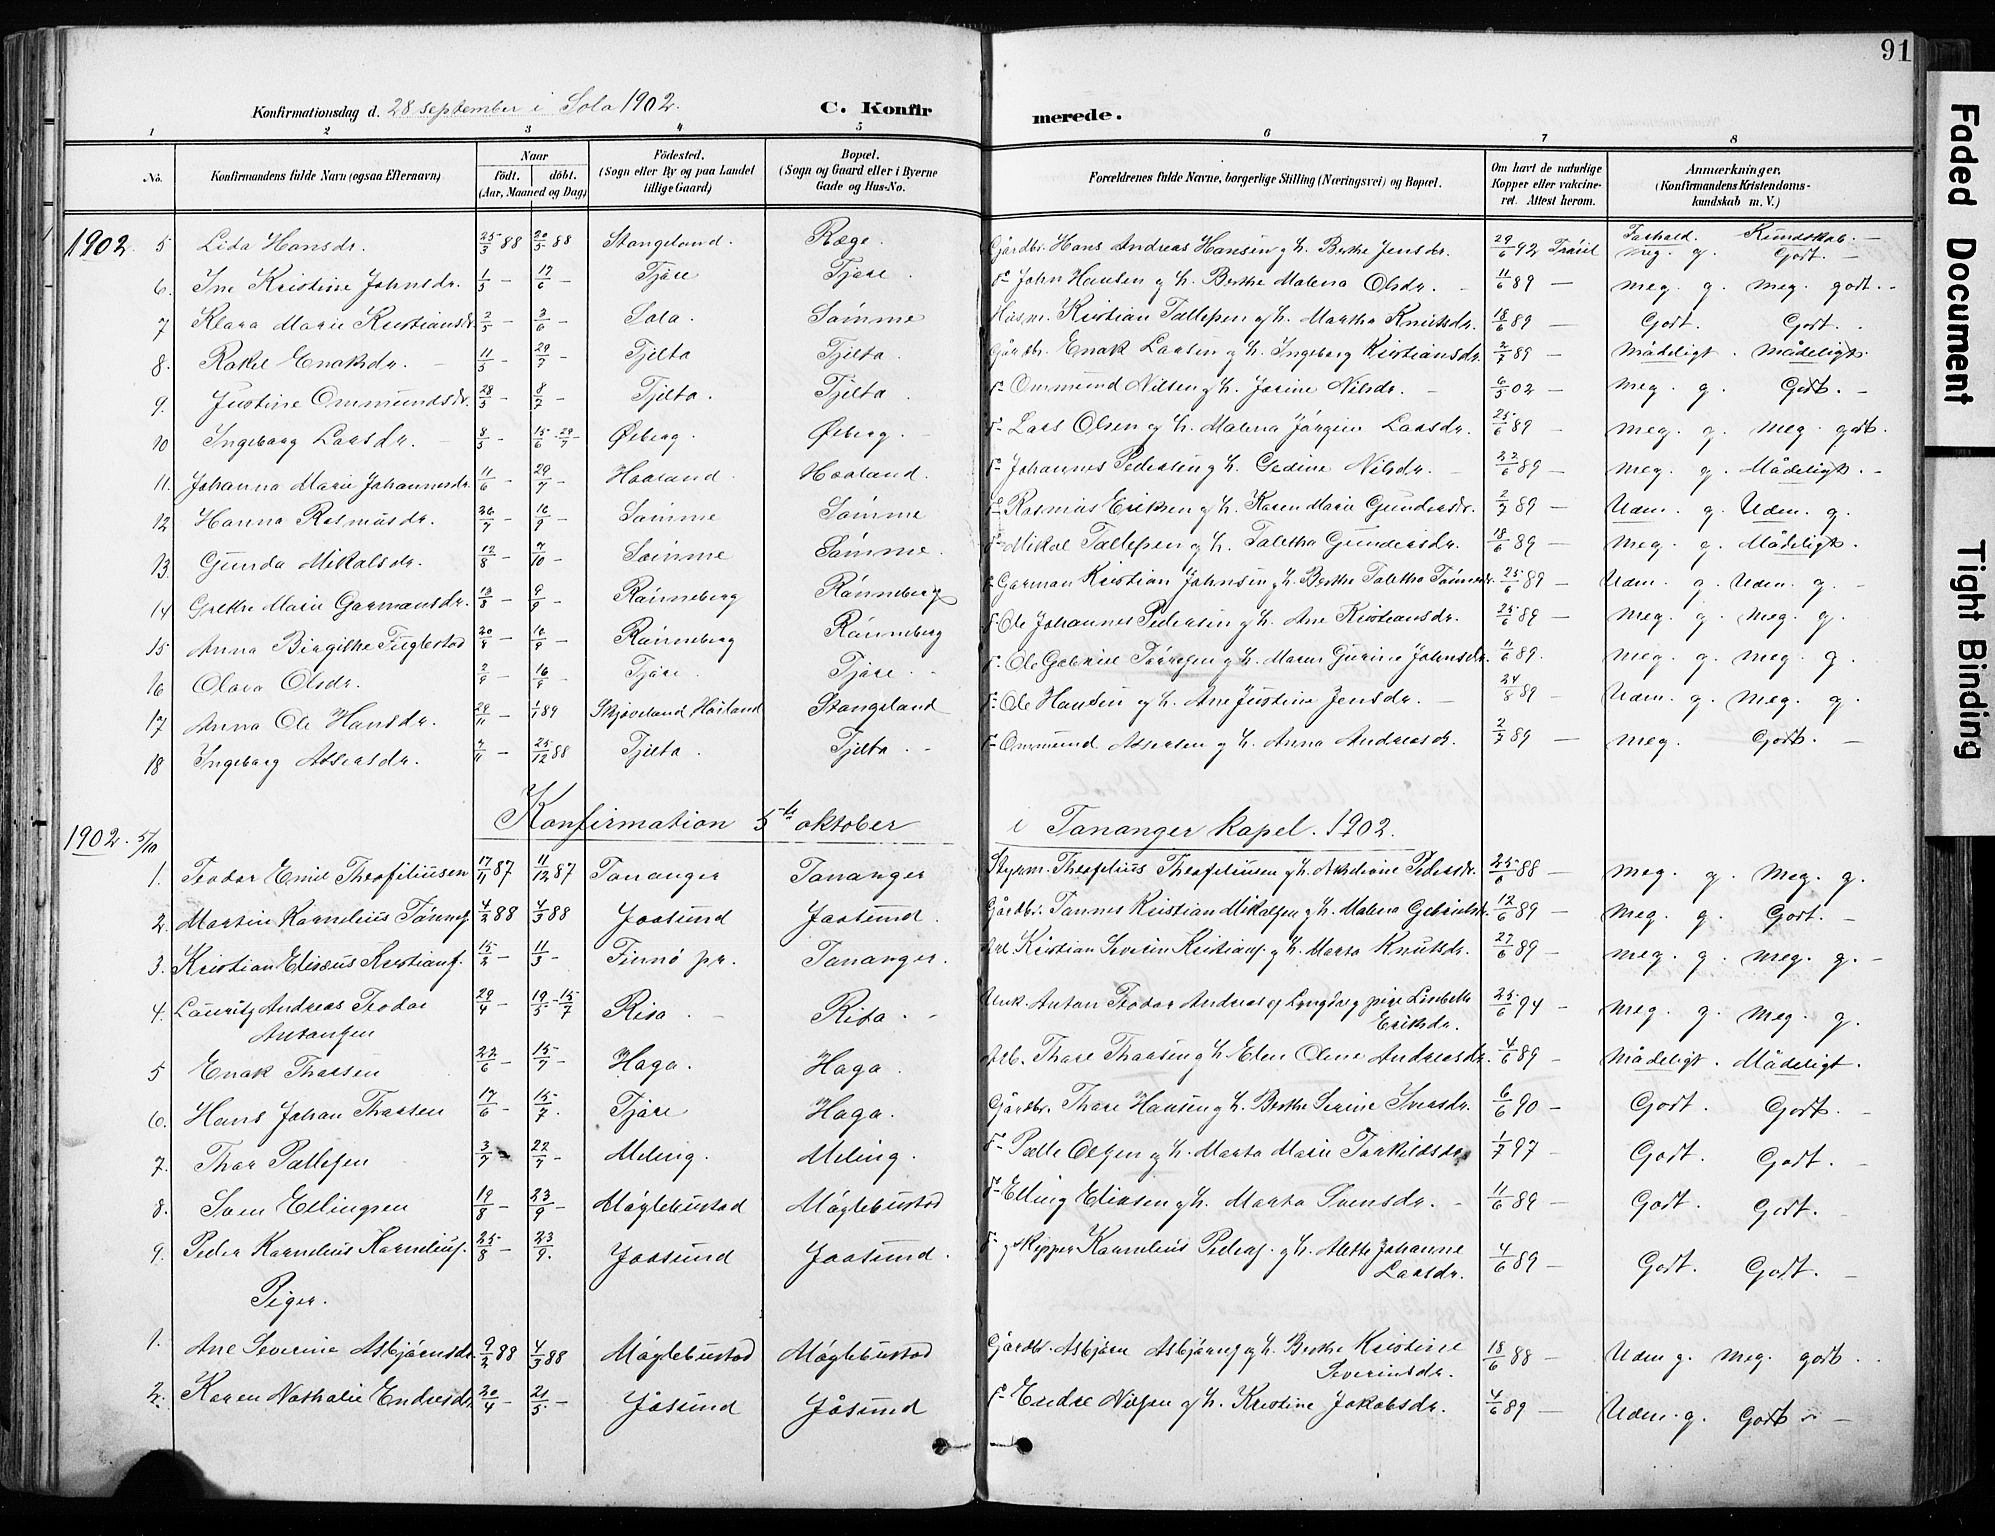 91
Konfirmationsdag d. 28 september i Sola 1902. C. Konfirmerede.
1 2 3 4 5 6 7 8
No. Konfirmandens fulde Navn (ogsaa Efternavn) Naar födt. döbt. (Aar, Maaned og Dag) Födested. (Sogn eller By og paa Landet tillige Gaard) Bopæl. (Sogn og Gaard eller i Byerne Gade og Hus-No. Forældrenes fulde Navne, borgerlige Stilling (Næringsvei) og Bopæl. Om havt de naturlige Kopper eller vakcineret. Attest herom. Anmærkninger. (Konfirmandens Kristendomskundskab m. V.)
Forhold. Kundskab.
1902. 5 Lida Hansdr. 25/3 88 20/5 88 Stangeland. Ræge. Gårdbr. Hans Andreas Hansen og h. Berthe Jensdr. 29/6 92 Meg. g. Godt. —
6. Ine Kristine Johnsdr. 1/5 — 17/6 — Tjåre Tjåre. D° John Hansen og h. Berthe Malena Olsdr. — 11/6 89 — Meg. g. Meg. godt. -
7 Klara Marie Kristiansdr. 2/5 — 3/6 — Sola. Sømme Husm. Kristian Tollefsen og h. Martha Knutsdr. 18/6 89 — Godt. Godt. .
8. Rakel Enoksdr. — 11/5 — 29/7 — Tjelta Tjelta. Gårdbr. Enok Larsen og h. Ingeborg Kristiansdr. 2/7 89 — Mådeligt. Mådeligt.
9. Justine Ommundsdr. 28/5 — 8/7 — Tjelta. Tjelta. D° Ommund Nilsen og h. Jorine Nilsdr. — 6/5 02 — Meg. g. Godt. —
10 Ingeborg Larsdr. — 8/5 — 15/6 - 29/7 Øiberg. Øiberg. — D° Lars Olsen og h. Malena Jørgine Larsdr. 25/6 89 — Meg. g. Meg. godt.
11. Johanna Marie Johannesdr. 11/6 — 29/7 — Haaland. Haaland. D° Johannes Pedersen og h. Gedine Nilsdr. — 22/6 89 — Meg. g. Mådeligt. -
12 Hanna Rasmusdr. 26/7 — 16/9 — Sømme Sømme D° Rasmus Eriksen og h. Karen Marie Gundersdr. 2/7 89 — Udm. g. Udm. g.
13. Gunda Mikalsdr. 12/8 — 7/10 — Sømme Sømme. D° Mikal Tollefsen og h. Taletha Gundersdr. 18/6 89 — Meg. g. Mådeligt.
14 Grethe Marie Garmansdr. 13/8 — 9/9 — Rønneberg Rønneberg D° Garman Kristian Johnsen og h. Berthe Taletha 25/6 89 — Udm. g. Udm. g. -
15 Anna Birgithe Fuglestad 20/8 — 16/9 — Rønneberg Rønneberg D° Ole Johannes Pedersen og h. Ane Kristiansdr. 25/6 89 — Meg. g. Meg. g.
16 Olava Olsdr. 2/9 — 16/9 — Tjåre. Tjåre. D° Ole Gabriel Tørresen og h. Maren Gurine Johnsdr. 11/6 89. Meg. g. Meg. g.
17 Anna Ole Hansdr. 28/11 — 1/1 89 Skjæveland Høiland Stangeland D° Ole Hansen og h. Ane Justine Jensdr. — 24/8 89 Udm. g. Meg. g.
18 Ingeborg Assersdr. 7/11 — 25/12 88 Tjelta. Tjelta. - D° Ommund Assersen og h. Anna Andreasdr. 2/7 89 — Meg. Godt. —
1902. 5/10 Konfirmation 5te oktober i Tananger kapel. 1902.
1. Teodor Emil Theofiliussen 17/11 87 11/12 87 Tananger Tananger Styrm. Theofilius Theofiliussen og h. Pedersdr. 25/6 88 — Meg. g. Meg. g.
2. Martin Kornelius Tønnes. 4/2 88 4/3 88 Joasund Joasund. Gårdbr. Tønnes Kristian Mikalsen og h. Malena Gabrielsdr. 12/6 89 — Meg. g. Godt. —
3. Kristian Elisæus Kristians. 15/2 — 11/3 — Finnø pr. Tananger. Arb. Kristian Severin Kristians. og h. Marta Knutsdr. 27/6 89 — Meg. g. Meg. g. —
4. Lauritz Andreas Teodor Antonsen 29/4 — 19/5 - 15/7 Risa. — Risa. - Unk. Anton Teodor Andreas of Lyngdog pige Lisbeth Eriksdr. 25/6 94 — Meg. g. Meg. g.
5 Enok Thorsen 22/6 — 15/7 — Haga. Haga. Arb. Thore Thorsen og h. Elen Oline Andreasdr. 4/6 89 — Mådeligt. Mådeligt.
6. Hans Johan Thorsen 17/6 — 15/7 — Tjåre Haga. Gårdbr. Thore Hansen og h. Berthe Serine Sversdr. 6/6 90 — Godt. Godt. —
7. Thor Pollesen 3/7 — 22/7 — Meling. Meling. D° Polle Olsen og h. Marta Marie Torkildsdr. 1/7 97 — Godt. Godt. —
8. Sven Ellingsen 19/8 — 23/9 — Møglebustad Møglebustad D° Elling Eliasen og h. Marta Svensdr. — 11/6 89 — Godt. Godt. —
9. Peder Kornelius Kornelius. 25/8 — 23/9. Joasund Joasund. D° og Skipper Kornelius Peders. og h. Alette Johanne Larsdr. 4/6 89 — Godt. Godt. —
Piger.
1. Ane Severine Asbjørnsdr. 9/2 88 4/3 88 Møglebustad Møglebustad Gårdbr. Asbjørn Asbjørns. og h. Berthe Kristine Severinsdr. 18/6 88 — Udm g. Meg. godt. .
2. Karen Nathalie Endresdr. 20/4 — 21/5 — Jåsund Jåsund D° Endre Nilsen og h. Kristine Jakobsdr. 4/6 89 — Udm. g. Godt —
Faded Document
Tight Binding